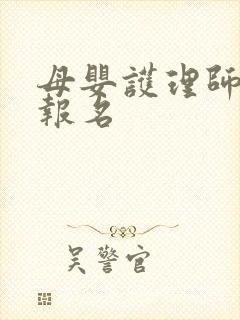 母嬰護理師
報名
吳警官